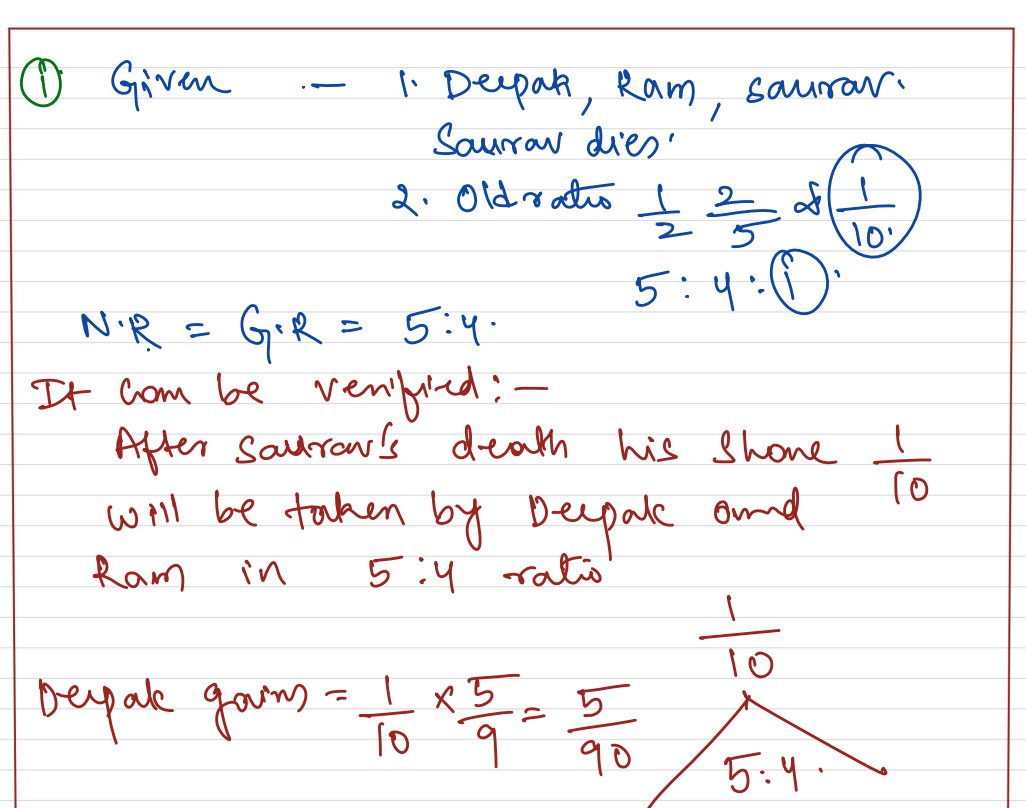 ① Given :- 1. Deepak, Ram, Saurav.
Saurav dies.
2. Old ratio 1/2 2/5 & 1/10.
5 : 4 : 1.
N.R = G.R = 5:4.
It can be verified :-
After Saurav's death his share 1/10
will be taken by Deepak and
Ram in 5:4 ratio
1/10
Deepak gains = 1/10 × 5/9 = 5/90
5:4.